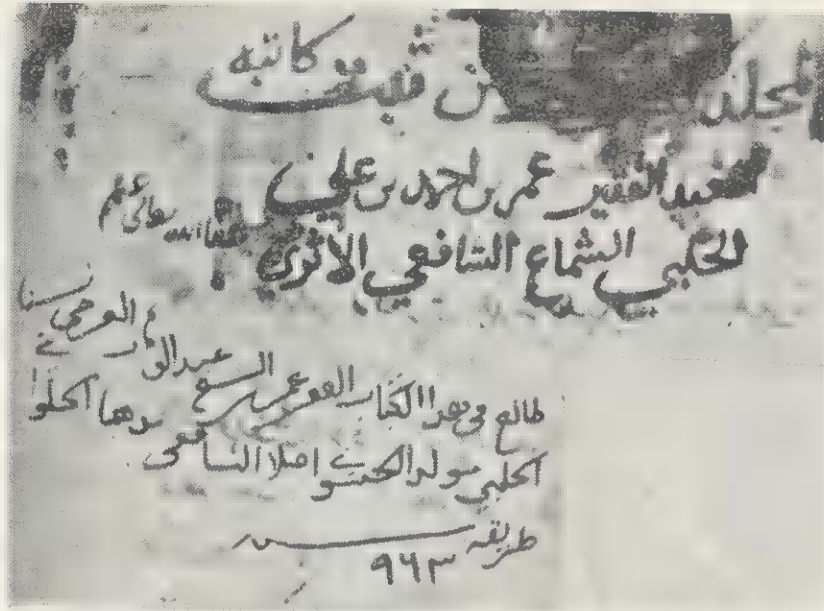 المجلد من ثبت كاتبه
العبد الفقير عمر بن احمد بن علي
عفا الله تعالى عنهم
الحلبي الشماع الشافعي الاثري
طالع في هذا الكتاب الفقير عمر بن الشيخ عبد الوهاب العرضي نسبا
الحلبي مولدا الحسيني اصلا الشافعي مذهبا
طريقة
٩٦٣